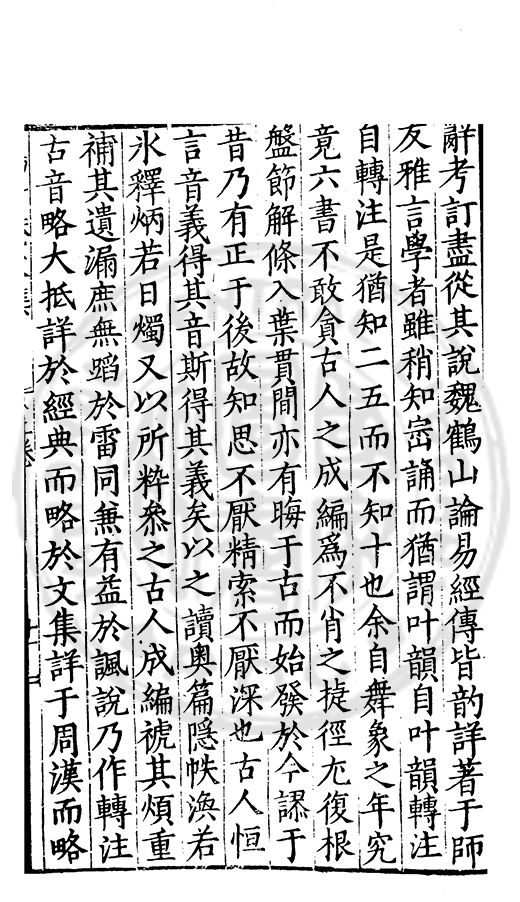 辭考訂盡從其說魏鶴山論易經傳皆韵詳著于師
友雅言學者雖稍知密誦而猶謂叶韻自叶韻轉注
自轉注是猶知二五而不知十也余自舞象之年究
竟六書不敢貪古人之成編爲不肖之捷徑尢復根
盤節解條入葉貫間亦有晦于古而始發於今謬于
昔乃有正于後故知思不厭精索不厭深也古人恒
言音義得其音斯得其義矣以之讀奧篇隱帙渙若
氷釋炳若日燭又以所粹叅之古人成編褫其煩重
補其遺漏庶無蹈於雷同兼有益於諷說乃作轉注
古音略大抵詳於經典而略於文集詳于周漢而略